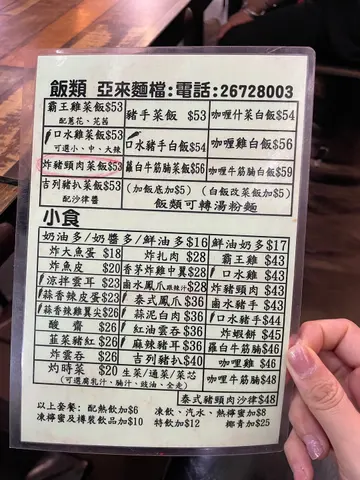 飯類 亞來麵檔:電話:26728003
霸王雞菜飯$53 豬手菜飯 $53 咖喱什菜白飯$54
配薑花、芫茜
口水雞菜飯$53 口水豬手白飯$54 咖喱雞白飯$56
可選小、中、大辣
炸豬頸肉菜飯$53 蘿白牛筋腩菜飯$56 咖喱牛筋腩白飯$59
吉列豬扒菜飯$53 (加飯底加$5) (白飯改菜飯加$5)
配沙律醬 飯類可轉湯粉麵
小食
奶油多/奶醬多/鮮油多$16 鮮油奶多$17
炸大魚蛋 $18 炸扎肉 $28 霸王雞 $43
炸魚皮 $20 香茅雞中翼$28 口水雞 $43
涼拌雲耳 $23 鹵水鳳爪跟辣汁$28 炸豬頸肉 $43
蒜香辣皮蛋$23 泰式鳳爪$36 鹵水豬手 $43
蒜香辣雞翼尖$26 蒜泥白肉 $36 口水豬手$44
酸齋 $26 紅油雲吞 $36 炸蝦餅 $45
韮菜豬紅$26 麻辣豬耳$36 蘿白牛筋腩$46
炸雲吞 $26 吉列豬扒$40 咖喱雞 $46
灼時菜 $20 生菜/通菜/菜芯 咖喱牛筋腩$48
(可選腐乳汁、腩汁、豉油、全走)
泰式豬頸肉沙律$48
以上套餐: 配熱飲加$6 凍飲、汽水、熱檸蜜加$8
凍檸蜜及樽裝飲品加$10 特飲加$12 椰青加$25